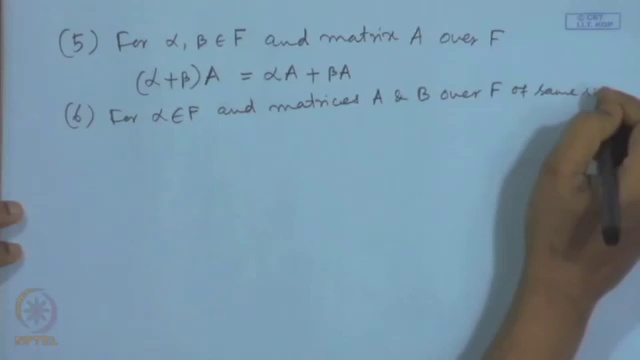 © CET
I.I.T. KGP
(5) For α, β ∈ F and matrix A over F
(α+β)A = αA + βA
(6) For α ∈ F and matrices A & B over F of same
NPTEL